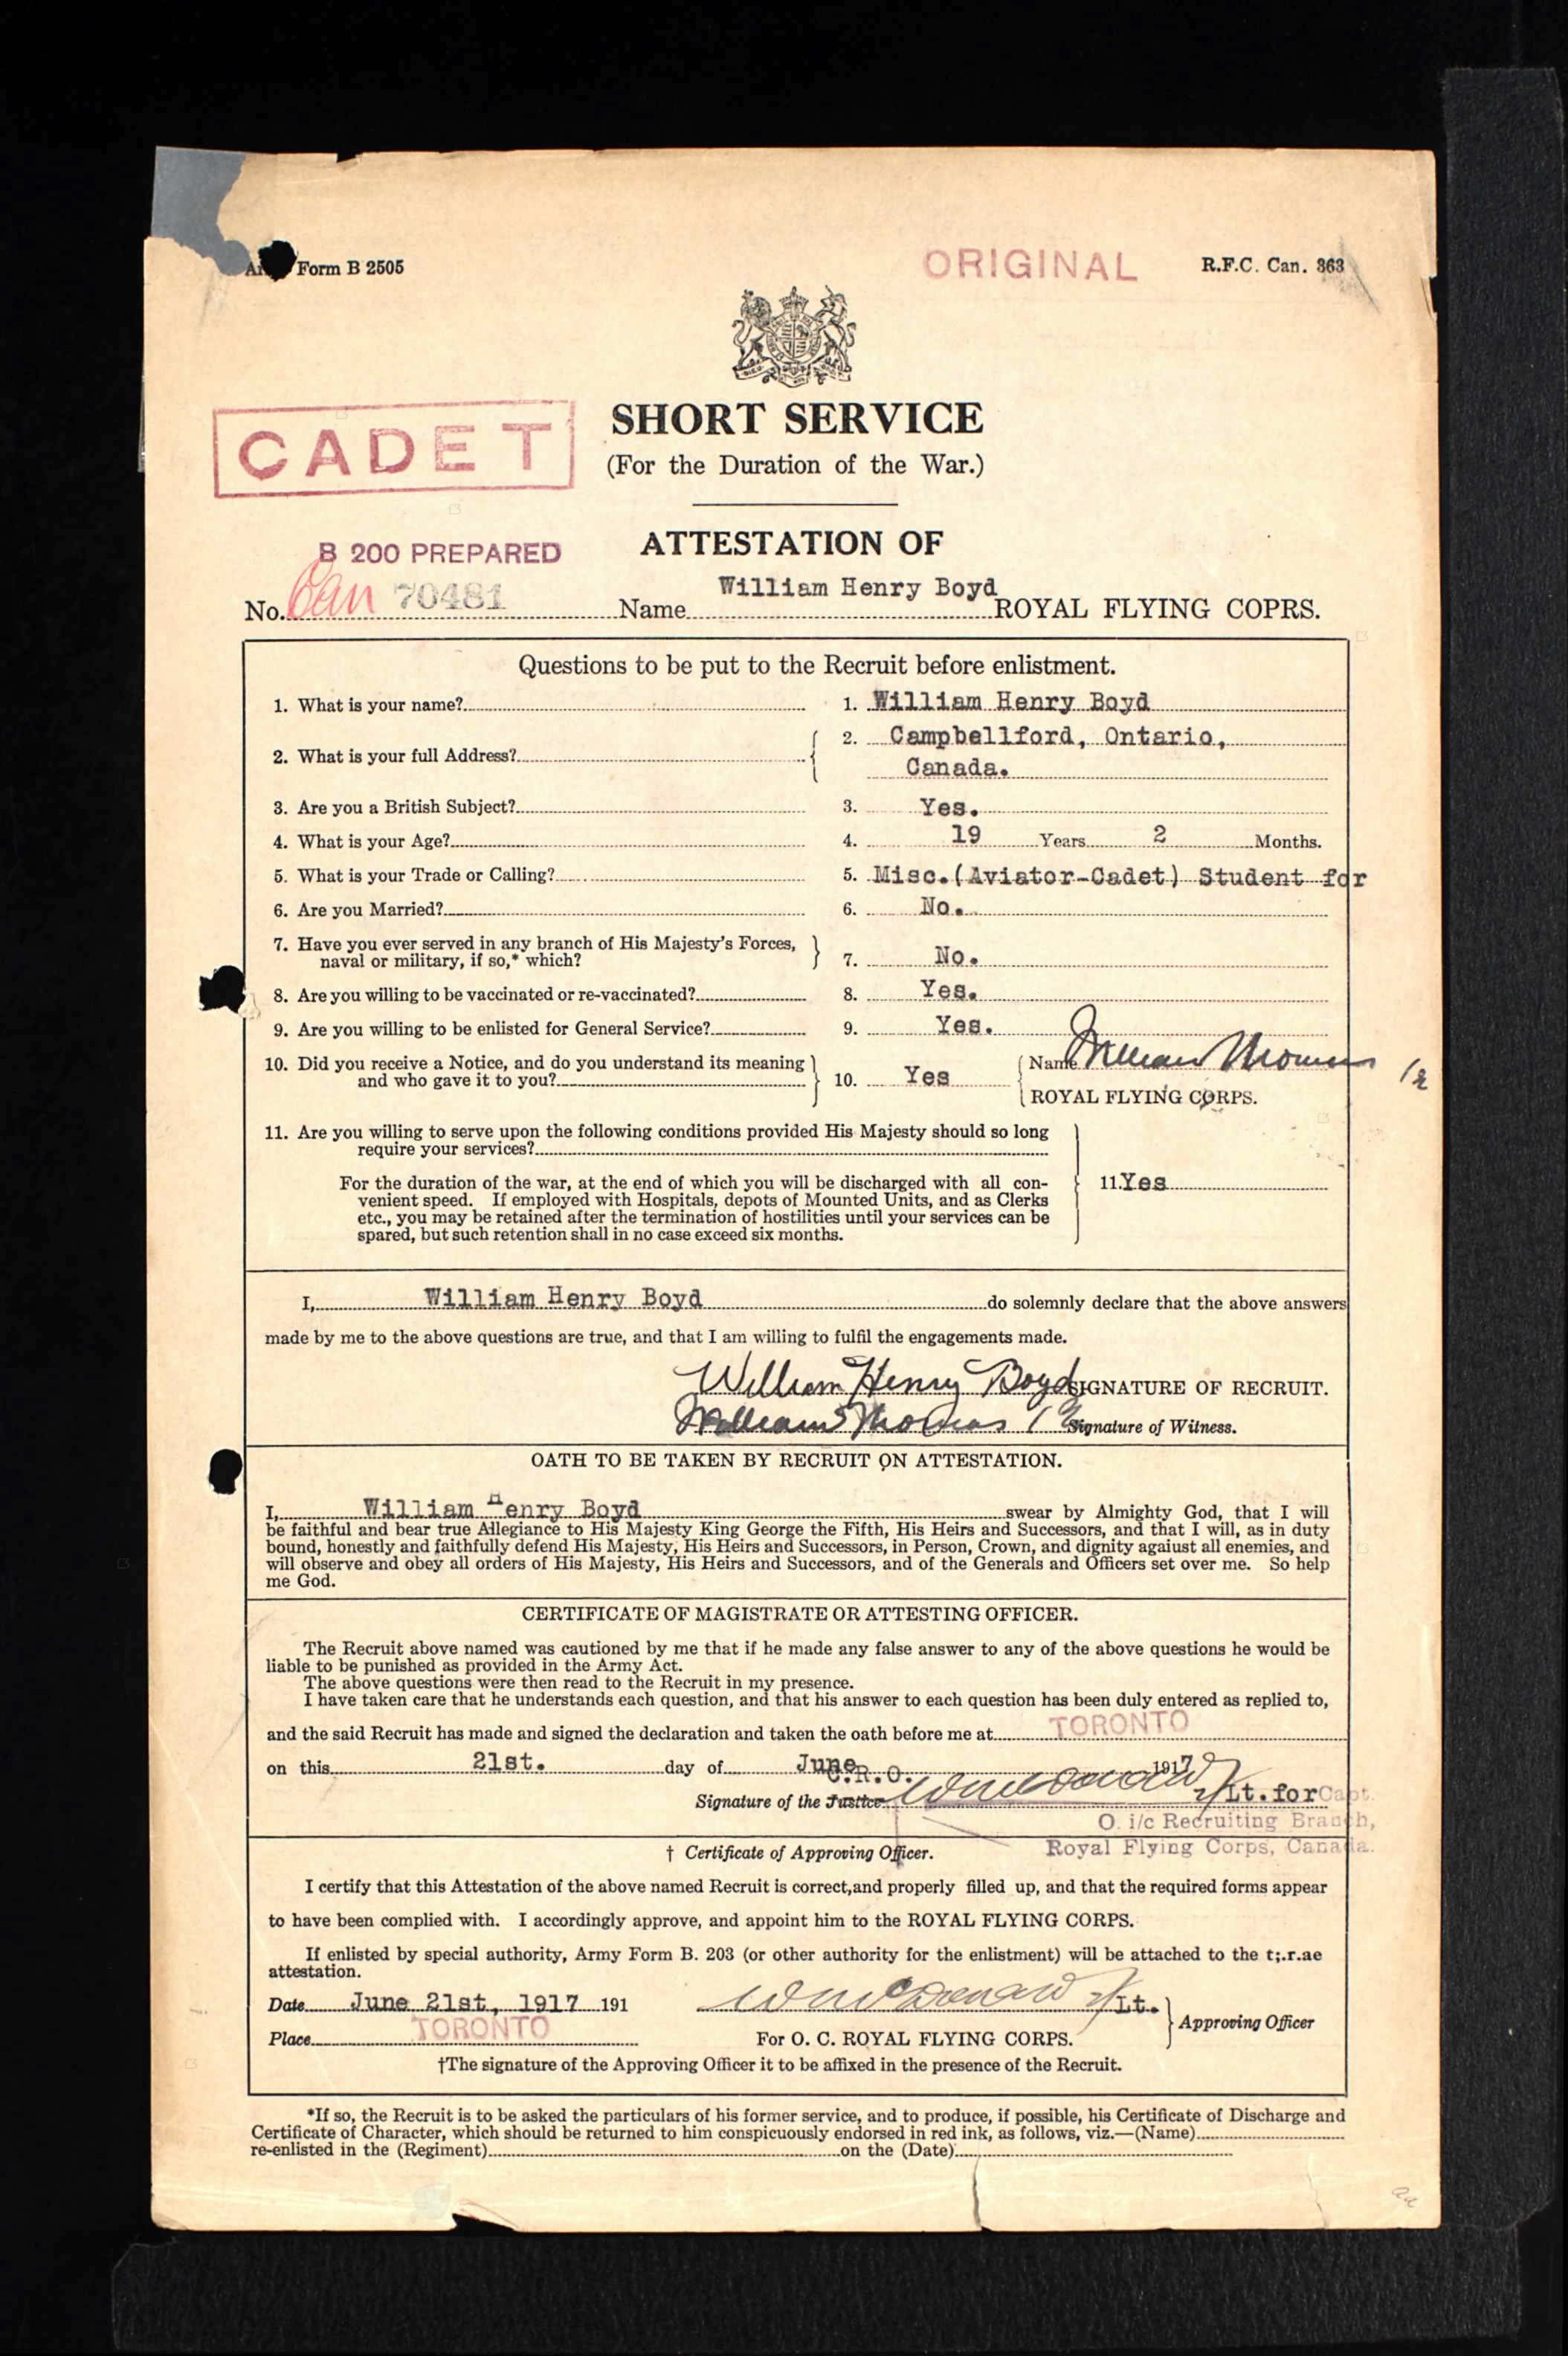 Form B 2505
ORIGINAL
R.F.C. Can. 363
CADET
SHORT SERVICE
(For the Duration of the War.)
ATTESTATION OF
B 200 PREPARED
No. Can 70481 Name William Henry Boyd ROYAL FLYING COPRS.
Questions to be put to the Recruit before enlistment.
1. What is your name? 1. William Henry Boyd
2. What is your full Address? 2. Campbellford, Ontario,
Canada.
3. Are you a British Subject? 3. Yes.
4. What is your Age? 4. 19 Years 2 Months.
5. What is your Trade or Calling? 5. Misc.(Aviator-Cadet) Student for
6. Are you Married? 6. No.
7. Have you ever served in any branch of His Majesty's Forces,
naval or military, if so,* which? 7. No.
8. Are you willing to be vaccinated or re-vaccinated? 8. Yes.
9. Are you willing to be enlisted for General Service? 9. Yes.
10. Did you receive a Notice, and do you understand its meaning
and who gave it to you? 10. Yes Name William Thomas
ROYAL FLYING CORPS.
11. Are you willing to serve upon the following conditions provided His Majesty should so long
require your services?
For the duration of the war, at the end of which you will be discharged with all con-
venient speed. If employed with Hospitals, depots of Mounted Units, and as Clerks
etc., you may be retained after the termination of hostilities until your services can be
spared, but such retention shall in no case exceed six months.
11. Yes
I, William Henry Boyd do solemnly declare that the above answers
made by me to the above questions are true, and that I am willing to fulfil the engagements made.
William Henry Boyd SIGNATURE OF RECRUIT.
William Thomas Signature of Witness.
OATH TO BE TAKEN BY RECRUIT ON ATTESTATION.
I, William Henry Boyd swear by Almighty God, that I will
be faithful and bear true Allegiance to His Majesty King George the Fifth, His Heirs and Successors, and that I will, as in duty
bound, honestly and faithfully defend His Majesty, His Heirs and Successors, in Person, Crown, and dignity agaiust all enemies, and
will observe and obey all orders of His Majesty, His Heirs and Successors, and of the Generals and Officers set over me. So help
me God.
CERTIFICATE OF MAGISTRATE OR ATTESTING OFFICER.
The Recruit above named was cautioned by me that if he made any false answer to any of the above questions he would be
liable to be punished as provided in the Army Act.
The above questions were then read to the Recruit in my presence.
I have taken care that he understands each question, and that his answer to each question has been duly entered as replied to,
and the said Recruit has made and signed the declaration and taken the oath before me at TORONTO
on this 21st. day of June 1917
C.R.O.
Signature of the Justice 2/Lt. for Capt.
O. i/c Recruiting Branch,
Royal Flying Corps, Canada.
† Certificate of Approving Officer.
I certify that this Attestation of the above named Recruit is correct,and properly filled up, and that the required forms appear
to have been complied with. I accordingly approve, and appoint him to the ROYAL FLYING CORPS.
If enlisted by special authority, Army Form B. 203 (or other authority for the enlistment) will be attached to the t;.r.ae
attestation.
Date June 21st, 1917 191 2/Lt.
Approving Officer
Place TORONTO For O. C. ROYAL FLYING CORPS.
†The signature of the Approving Officer it to be affixed in the presence of the Recruit.
*If so, the Recruit is to be asked the particulars of his former service, and to produce, if possible, his Certificate of Discharge and
Certificate of Character, which should be returned to him conspicuously endorsed in red ink, as follows, viz.—(Name)
re-enlisted in the (Regiment) on the (Date)